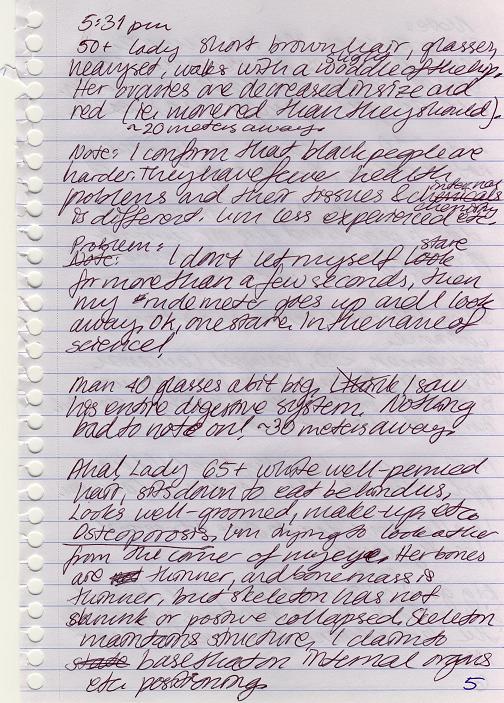 5:31 pm
50+ lady short brown hair, glasses
heavyset, walks with a waddle of the hip
Her ovaries are decreased in size and
red (ie, more red than they should).
~20 meters away.
Note: I confirm that black people are
harder. they have fewer health
problems and their tissues & internal
is different. I'm less experienced etc.
Problem: stare
Note: I don't let myself look
for more than a few seconds, then
my rudemeter goes up and I look
away. Ok, one stare. In the name of
science!
Man 40 glasses a bit big, I think I saw
his entire digestive system. Nothing
bad to note on! ~30 meters away.
Aha! Lady 65+ white well-permed
hair, sits down to eat behind us,
Looks well-groomed, make-up, etc.
Osteoporosis, I'm trying to look at her
from the corner of my eye. Her bones
are thinner, and bone mass is
thinner, but skeleton has not
shrunk or positive collapsed. Skeleton
maintains structure, I claim to
state base that on internal organs
etc positioning.
5